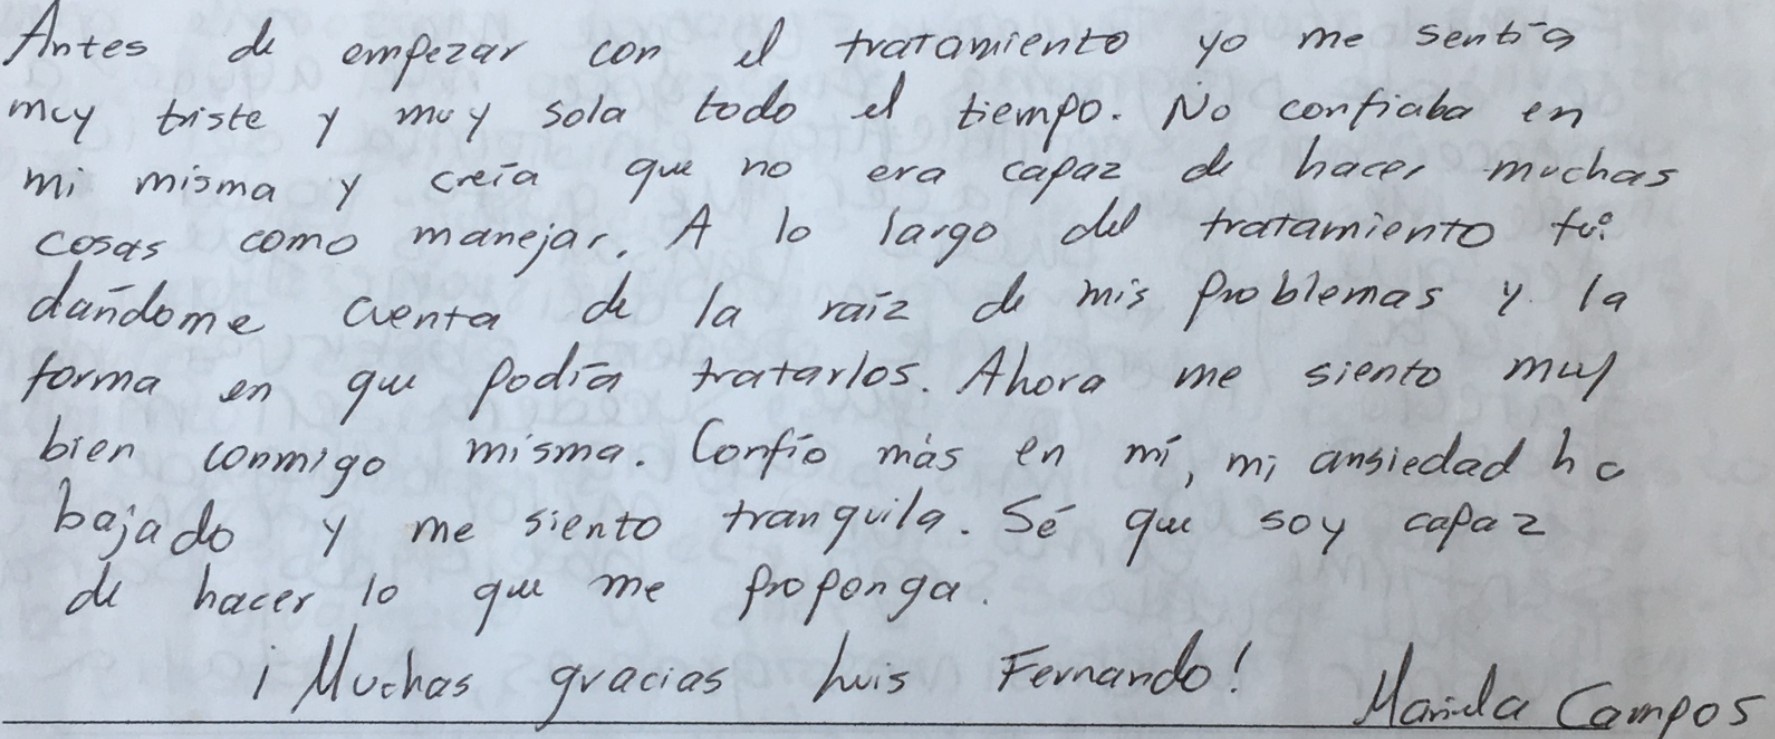 Antes de empezar con el tratamiento yo me sentía
muy triste y muy sola todo el tiempo. No confiaba en
mi misma y creía que no era capaz de hacer muchas
cosas como manejar. A lo largo del tratamiento fui
dándome cuenta de la raíz de mis problemas y la
forma en que podía tratarlos. Ahora me siento muy
bien conmigo misma. Confío más en mí, mi ansiedad ha
bajado y me siento tranquila. Sé que soy capaz
de hacer lo que me proponga.
¡Muchas gracias Luis Fernando!
Mariela Campos